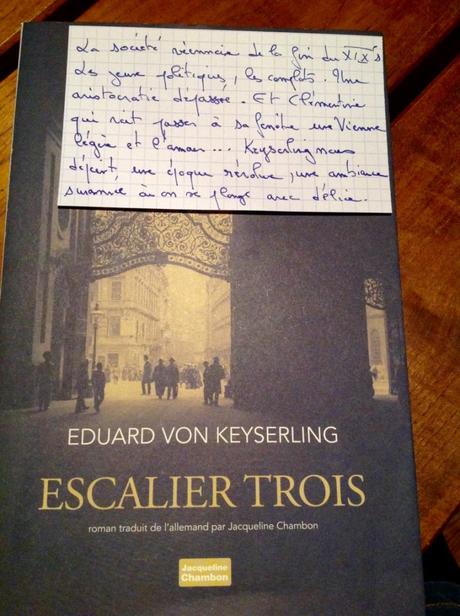 La société viennoise de la fin du XIXè s
Les jeux politiques, les complots. Une
aristocratie dépassée. Et Clémentine
qui voit passer à sa fenêtre une Vienne
légère et l'amour... Keyserling nous
dépeint, une époque révolue, une ambiance
surannée où on se plonge avec délice.
EDUARD VON KEYSERLING
ESCALIER TROIS
roman traduit de l'allemand par Jacqueline Chambon
Jacqueline
Chambon